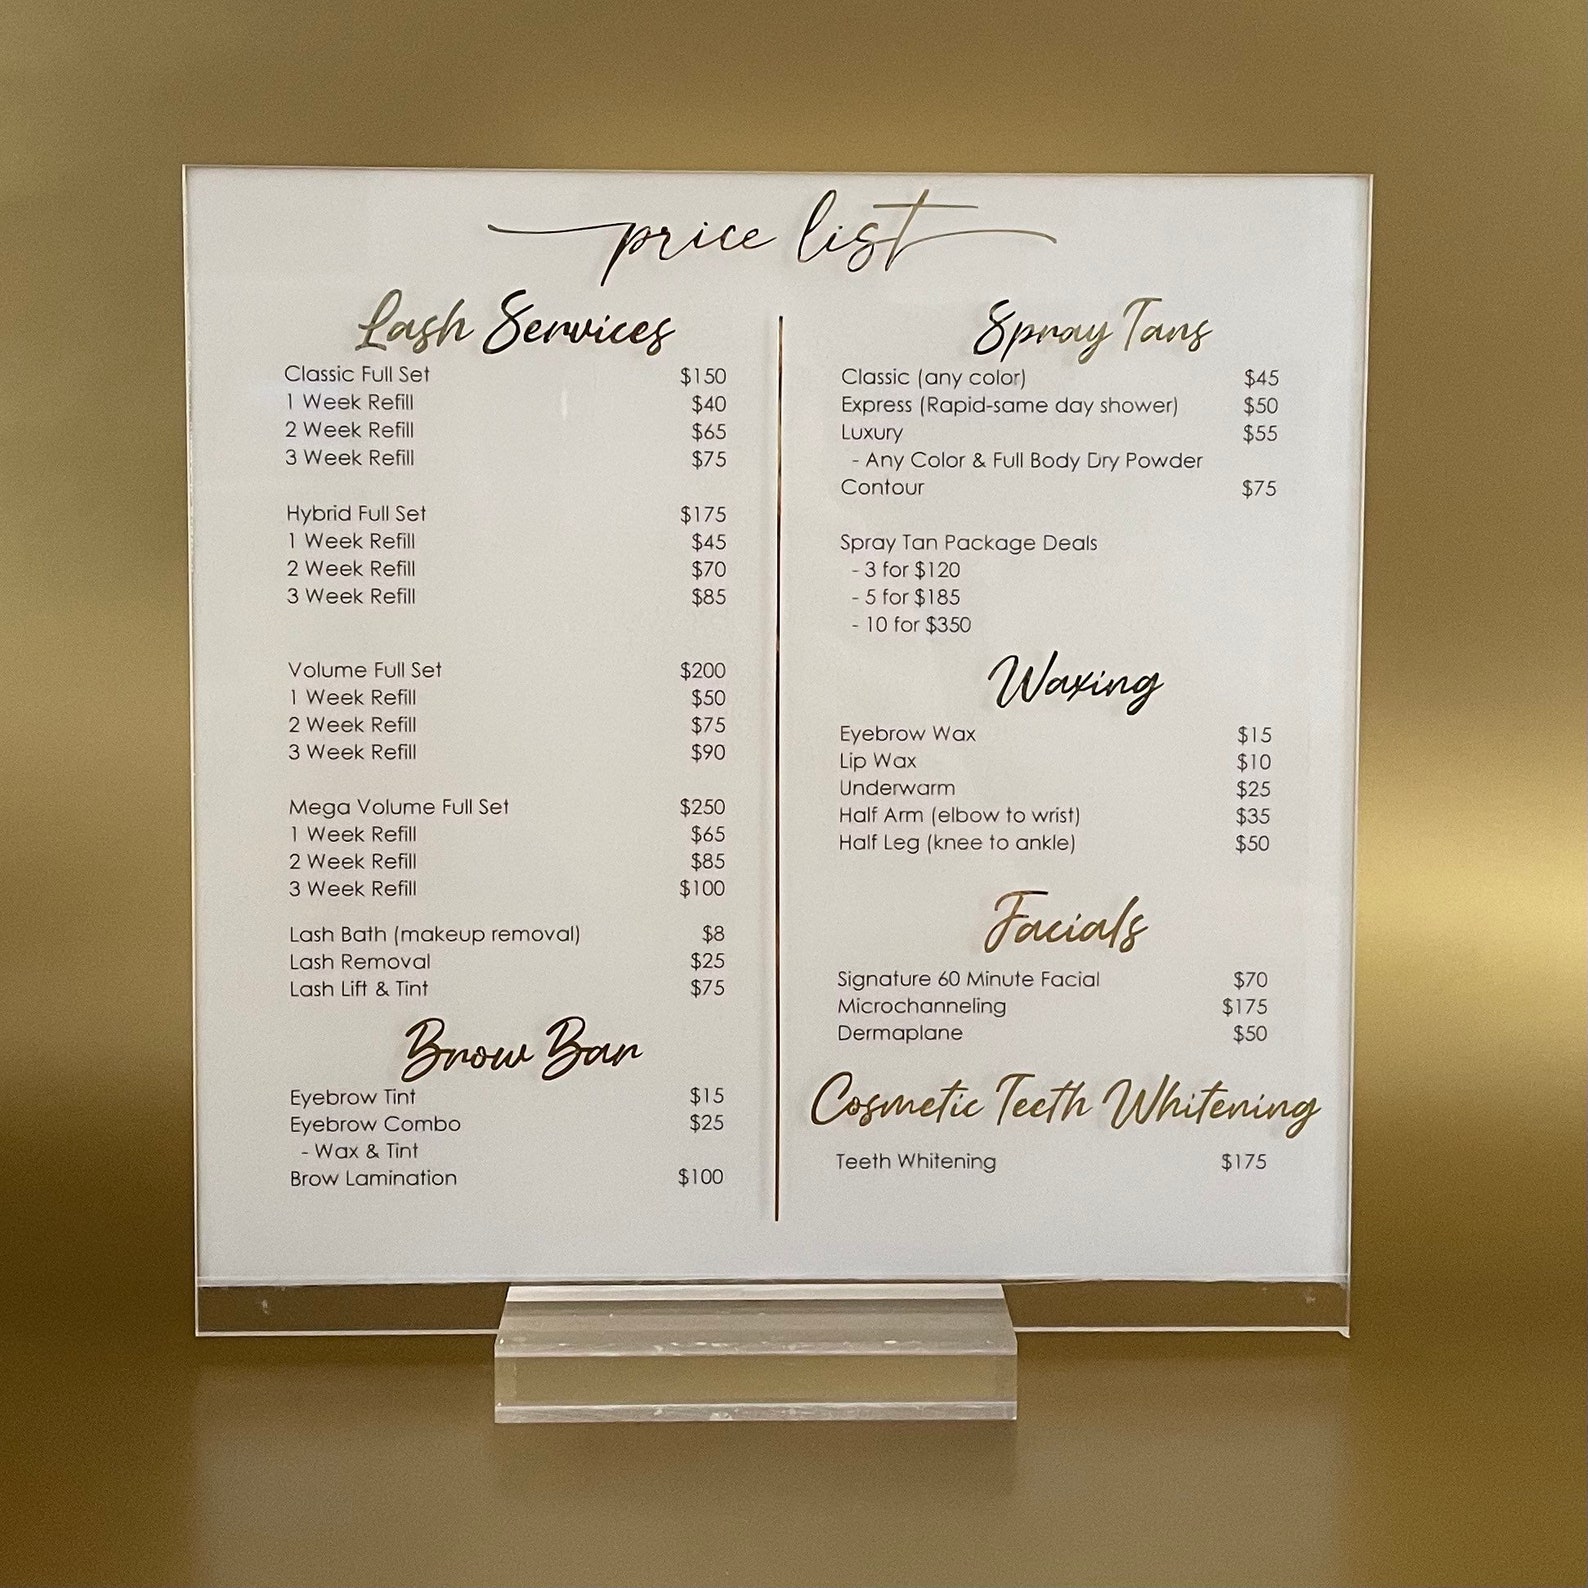 price list
Lash Services
Classic Full Set $150
1 Week Refill $40
2 Week Refill $65
3 Week Refill $75
Hybrid Full Set $175
1 Week Refill $45
2 Week Refill $70
3 Week Refill $85
Volume Full Set $200
1 Week Refill $50
2 Week Refill $75
3 Week Refill $90
Mega Volume Full Set $250
1 Week Refill $65
2 Week Refill $85
3 Week Refill $100
Lash Bath (makeup removal) $8
Lash Removal $25
Lash Lift & Tint $75
Brow Bar
Eyebrow Tint $15
Eyebrow Combo $25
- Wax & Tint
Brow Lamination $100
Spray Tans
Classic (any color) $45
Express (Rapid-same day shower) $50
Luxury $55
- Any Color & Full Body Dry Powder
Contour $75
Spray Tan Package Deals
- 3 for $120
- 5 for $185
- 10 for $350
Waxing
Eyebrow Wax $15
Lip Wax $10
Underwarm $25
Half Arm (elbow to wrist) $35
Half Leg (knee to ankle) $50
Facials
Signature 60 Minute Facial $70
Microchanneling $175
Dermaplane $50
Cosmetic Teeth Whitening
Teeth Whitening $175